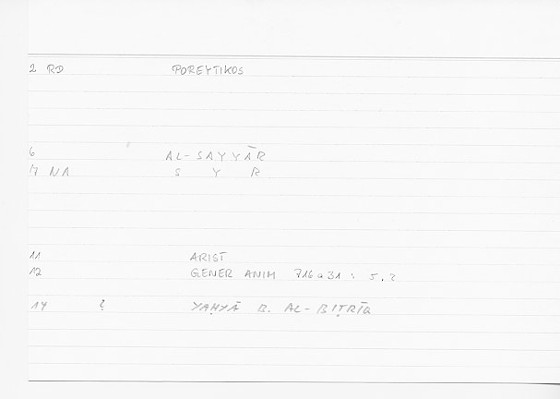 2 RD POREYTIKOS
6 AL-SAYYĀR
7 NA S Y R
11 ARIST
12 GENER ANIM 716a31 : 5.2
14 YAḤYĀ B. AL-BIṬRĪQ